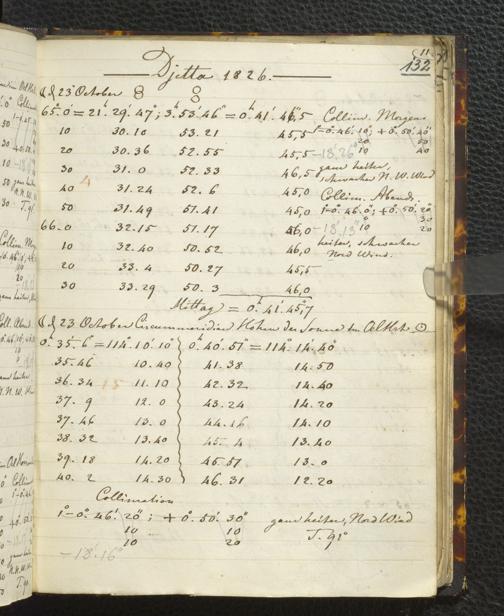 11
132
Djetta 1826.
☾ d 23 October
65°.0' = 21.29'.47"; 3.53'.46" = 0.41'.46,5 Collim. Morgens
10 30.10 53.21 45,5 1-0.46'.10"; +0.50'.40"
20 30.36 52.55 45,5 -18'.26" 10 40
30 31.0 52.33 46,5 ganz heiter,
schwacher N.W. Wind
40 31.24 52.6 45,0 Collim. Abends.
50 31.49 51.41 45,0 1-0.46'.0"; +0.50'.20"
30
66.0 32.15 51.17 46,0 -18'.13" 10 20
10 32.40 50.52 46,0 heiter, schwacher
Nord Wind.
20 33.4 50.27 45,5
30 33.29 50.3 46,0
Mittag = 0.41'.45",7
☾ d 23 October Circummeridian Höhen der Sonne im Al Hor. ☉
0.35'.6" = 114°.10'.10" 0.40'.57" = 114°.14'.40"
35.46 10.40 41.38 14.50
36.34 11.10 42.32 14.40
37.9 12.0 43.24 14.20
37.46 13.0 44.16 14.10
38.32 13.40 45.4 13.40
39.18 14.20 45.57 13.0
40.2 14.30 46.31 12.20
Collimation
1°-0°.46'.20"; +0°.50'.30" ganz heiter, Nord Wind
10 10 T. 91°
10 20
-18'.16"